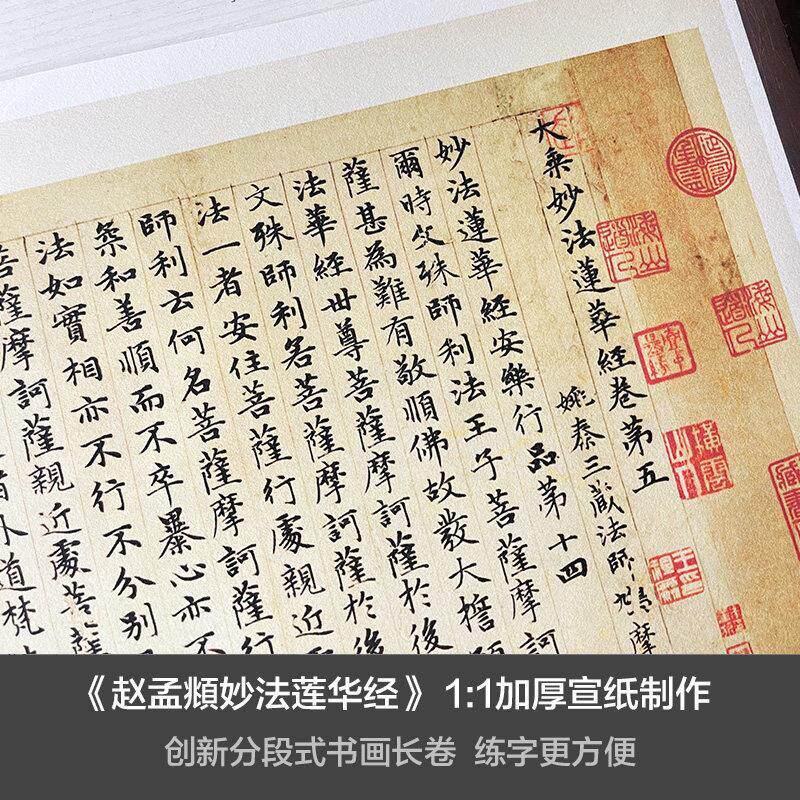 大乘妙法蓮華經卷第五
姚秦三藏法師鳩摩
妙法蓮華經安樂行品第十四
爾時文殊師利法王子菩薩摩訶
薩甚為難有敬順佛故發大誓願
法華經世尊菩薩摩訶薩於後
文殊師利若菩薩摩訶薩於後
法一者安住菩薩行處親近
師利云何名菩薩摩訶薩行
柔和善順而不卒暴心亦不
法如實相亦不行不分別
菩薩摩訶薩親近處菩薩
者外道梵
《赵孟頫妙法莲华经》1:1加厚宣纸制作
创新分段式书画长卷 练字更方便